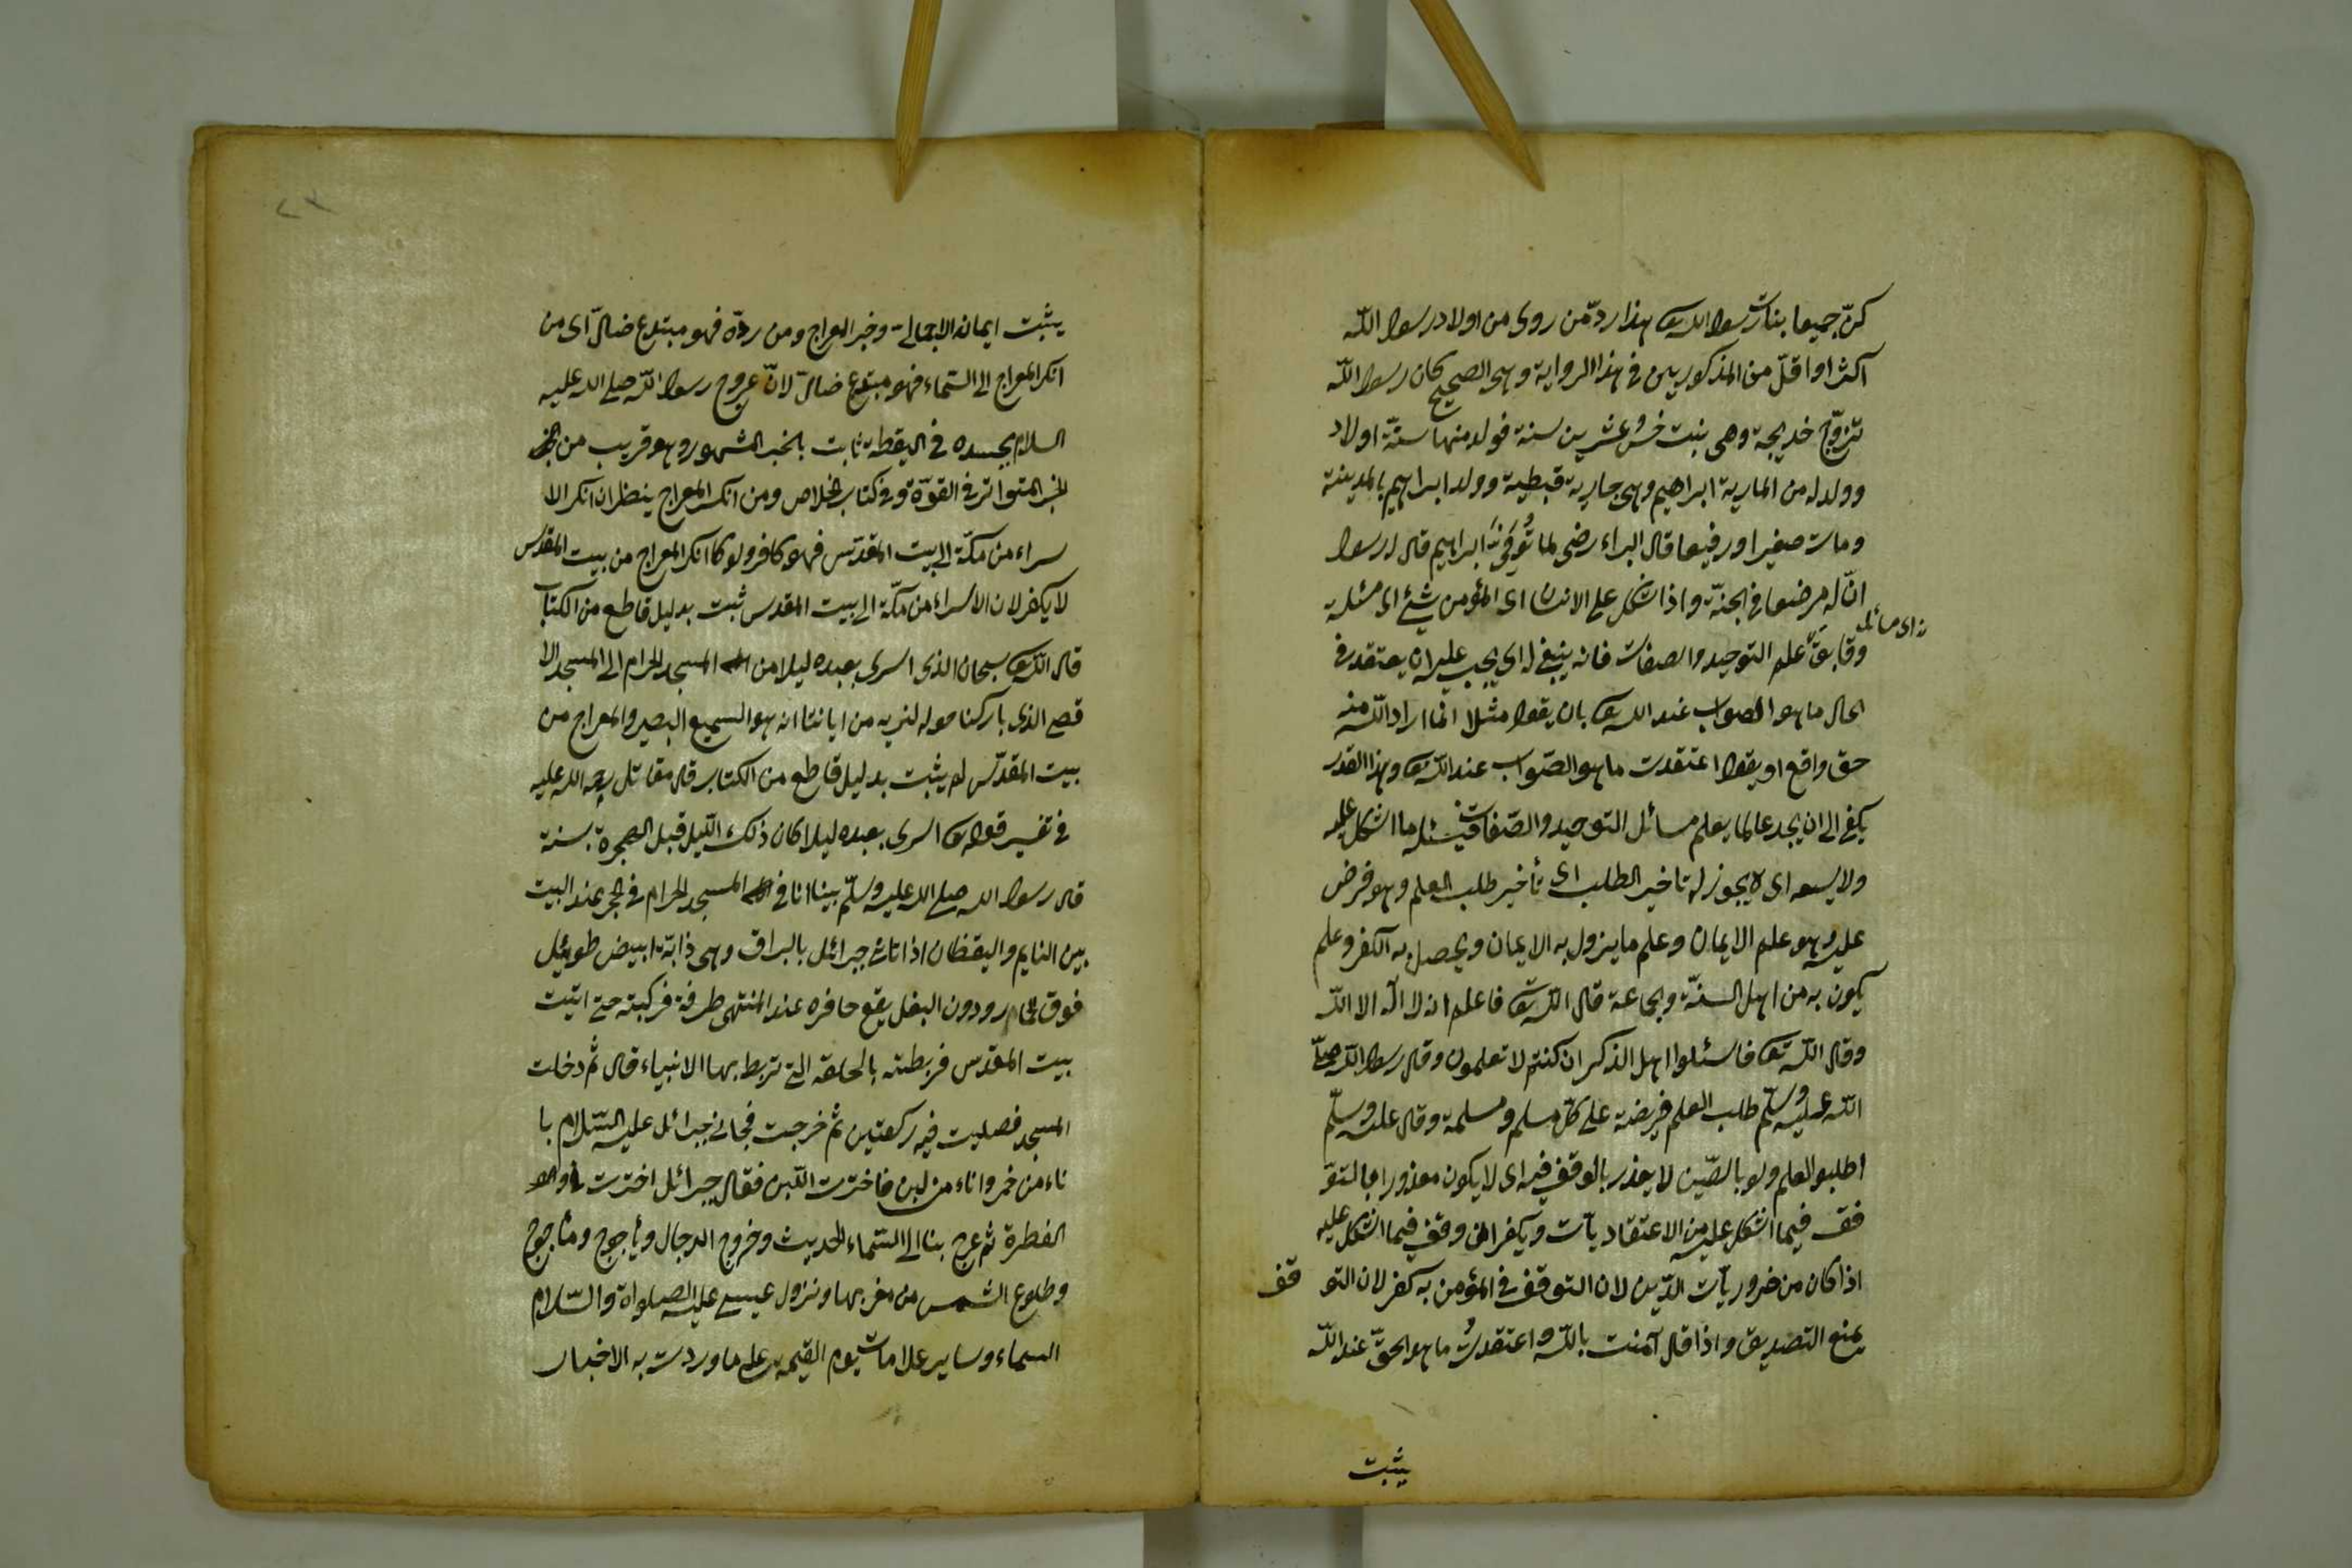 كنّ جميعا بنات رسول الله تعا هذا ردّ من روى من اولاد رسول الله
اكثر او اقلّ من المذكورين في هذا الرواية وهى الصحيح كان رسول الله
تزوّج خديجة وهى بنت خمس عشرين سنة فولد منها ستّة اولاد
وولد له من المارية ابراهيم وهى جارية قبطية وولد ابراهيم بالمدينة
ومات صغيرا ورضيعا قال البراء رضى لما تُوفّى ابراهيم قال رسول
انّ له مرضعا في الجنّة واذا اشكل على الانسان اى المؤمن شئ اى مسئلة
من دقايق علم التوحيد والصفات فانه ينبغي له اى يجب عليه ان يعتقد في
ن اى مسائل
الحال ما هو الصواب عند الله تعا بان يقول مثلا انما اراد الله منه
حق واقع او يقول اعتقدت ما هو الصّواب عند الله تعا وهذا القدر
يكفي الى ان يجد عالما يعلم مسائل التوحيد والصّفات فيسئله ما اشكل عليه
ولا يسعه اى لا يجوز له تاخير الطلب اى تأخير طلب العلم وهو فرض
عليه وهو علم الايمان وعلم ما يزول به الايمان ويحصل به الكفر وعلم
يكون به من اهل السنّة والجماعة قال الله تعا فاعلم انه لا اله الا الله
وقال الله تعا فاسئلوا اهل الذكر ان كنتم لا تعلمون وقال رسول الله صلّى
الله عليه وسلّم طلب العلم فريضة على كلّ مسلم ومسلمة وقال عليه وسلّم
اطلبو العلم ولو بالصّين لا يعذر بالوقف فيه اى لا يكون معذورا بالتو
قف فيما اشكل عليه من الاعتقاديات ويكفر ان وقف فيما اشكل عليه
اذا كان من ضروريّات الدّين لان التوقف في المؤمن به كفر لان التو قف
يمنع التصديق واذا قال آمنت بالله واعتقدتُ ما هو الحقّ عند الله
يثبت
يثبت ايمانه الاجمالي وخبر المعراج ومن ردّه فهو مبتدع ضالّ اى من
انكر المعراج الى السّماء فهو مبتدع ضالّ لانّ عروج رسول الله صلى الله عليه
السلام بجسده في اليقظة ثابت بالخبر المشهور وهو قريب من
الخبر المتواتر في القوّة وفي كتاب الخلاص ومن انكر المعراج ينظر ان انكر الا
سراء من مكّة الى بيت المقدّس فهو كافر ولو كا انكر المعراج من بيت المقدّس
لا يكفر لان الاسراء من مكّة الى بيت المقدس ثبت بدليل قاطع من الكتاب
قال الله تعا سبحان الذى اسرى بعبده ليلا من المسجد الحرام الى المسجد الا
قصى الذى باركنا حوله لنريه من اياتنا انه هو السميع البصير والمعراج من
بيت المقدّس لم يثبت بدليل قاطع من الكتاب قال مقاتل رحمة الله عليه
في تفسير قوله تعا اسرى بعبده ليلا كان ذلك اللّيل قبل الهجرة بسنة
قال رسول الله صلى الله عليه وسلّم بينا انا في المسجد الحرام في الحجر عند البيت
بين النايم واليقظان اذ اتانى جبرائل بالبراق وهى دابّة ابيض طويل
فوق الحمار ودون البغل يقع حافره عند المنتهى طرفة فركبته حتى اتيت
بيت المقدس فربطته بالحلقة التى تربط بها الانبياء قال ثم دخلت
المسجد فصليت فيه ركعتين ثم خرجت فجانى جبرائل عليه السّلام با
ناء من خمر واناء من لبن فاخترت اللّبن فقال جبرائل اخترت
الفطرة ثم عرج بنا الى السّماء الحديث وخروج الدجال ويأجوج ومأجوج
وطلوع الشّمس من مغربها ونزول عيسى عليه الصلواة والسّلام
السماء وساير علامات يوم القيمة على ما وردت به الاخبار